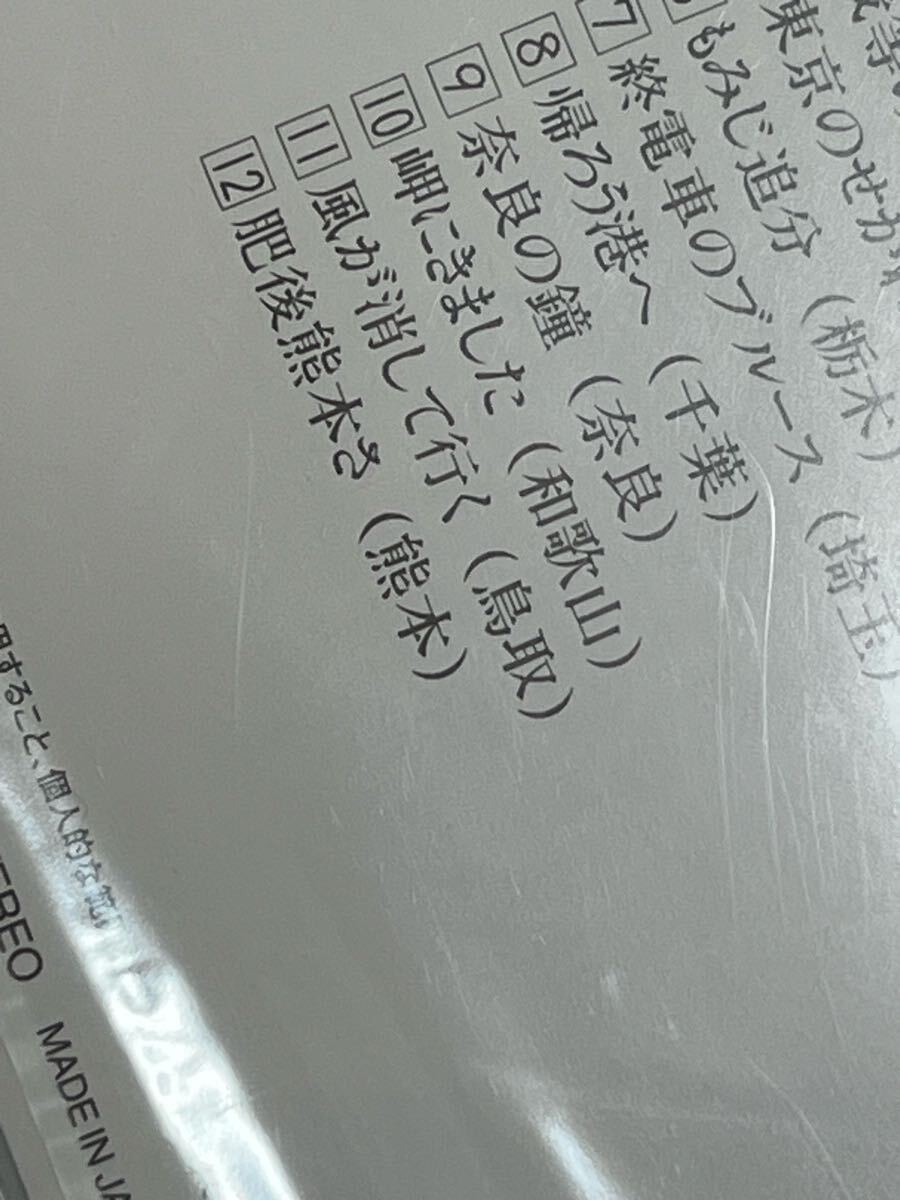 東京のせが
もみじ追分 (栃木)
7 終電車のブルース (埼玉)
8 帰ろう港へ (千葉)
9 奈良の鐘 (奈良)
10 岬にきました (和歌山)
11 風が消して行く (鳥取)
12 肥後熊本さ (熊本)
用すること、個人的な範
EREO MADE IN JA